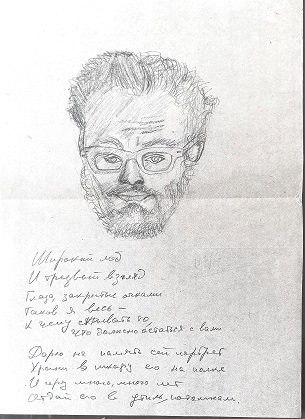 Широкий лоб
И трезвый взгляд
Глаза, закрытые очками
Таков я весь –
К чему скрывать то,
что должно остаться с вами
Дарю на память сей портрет
Храни в шкафу его на полке
И через много, много лет
Отдай его в утиль потомкам.